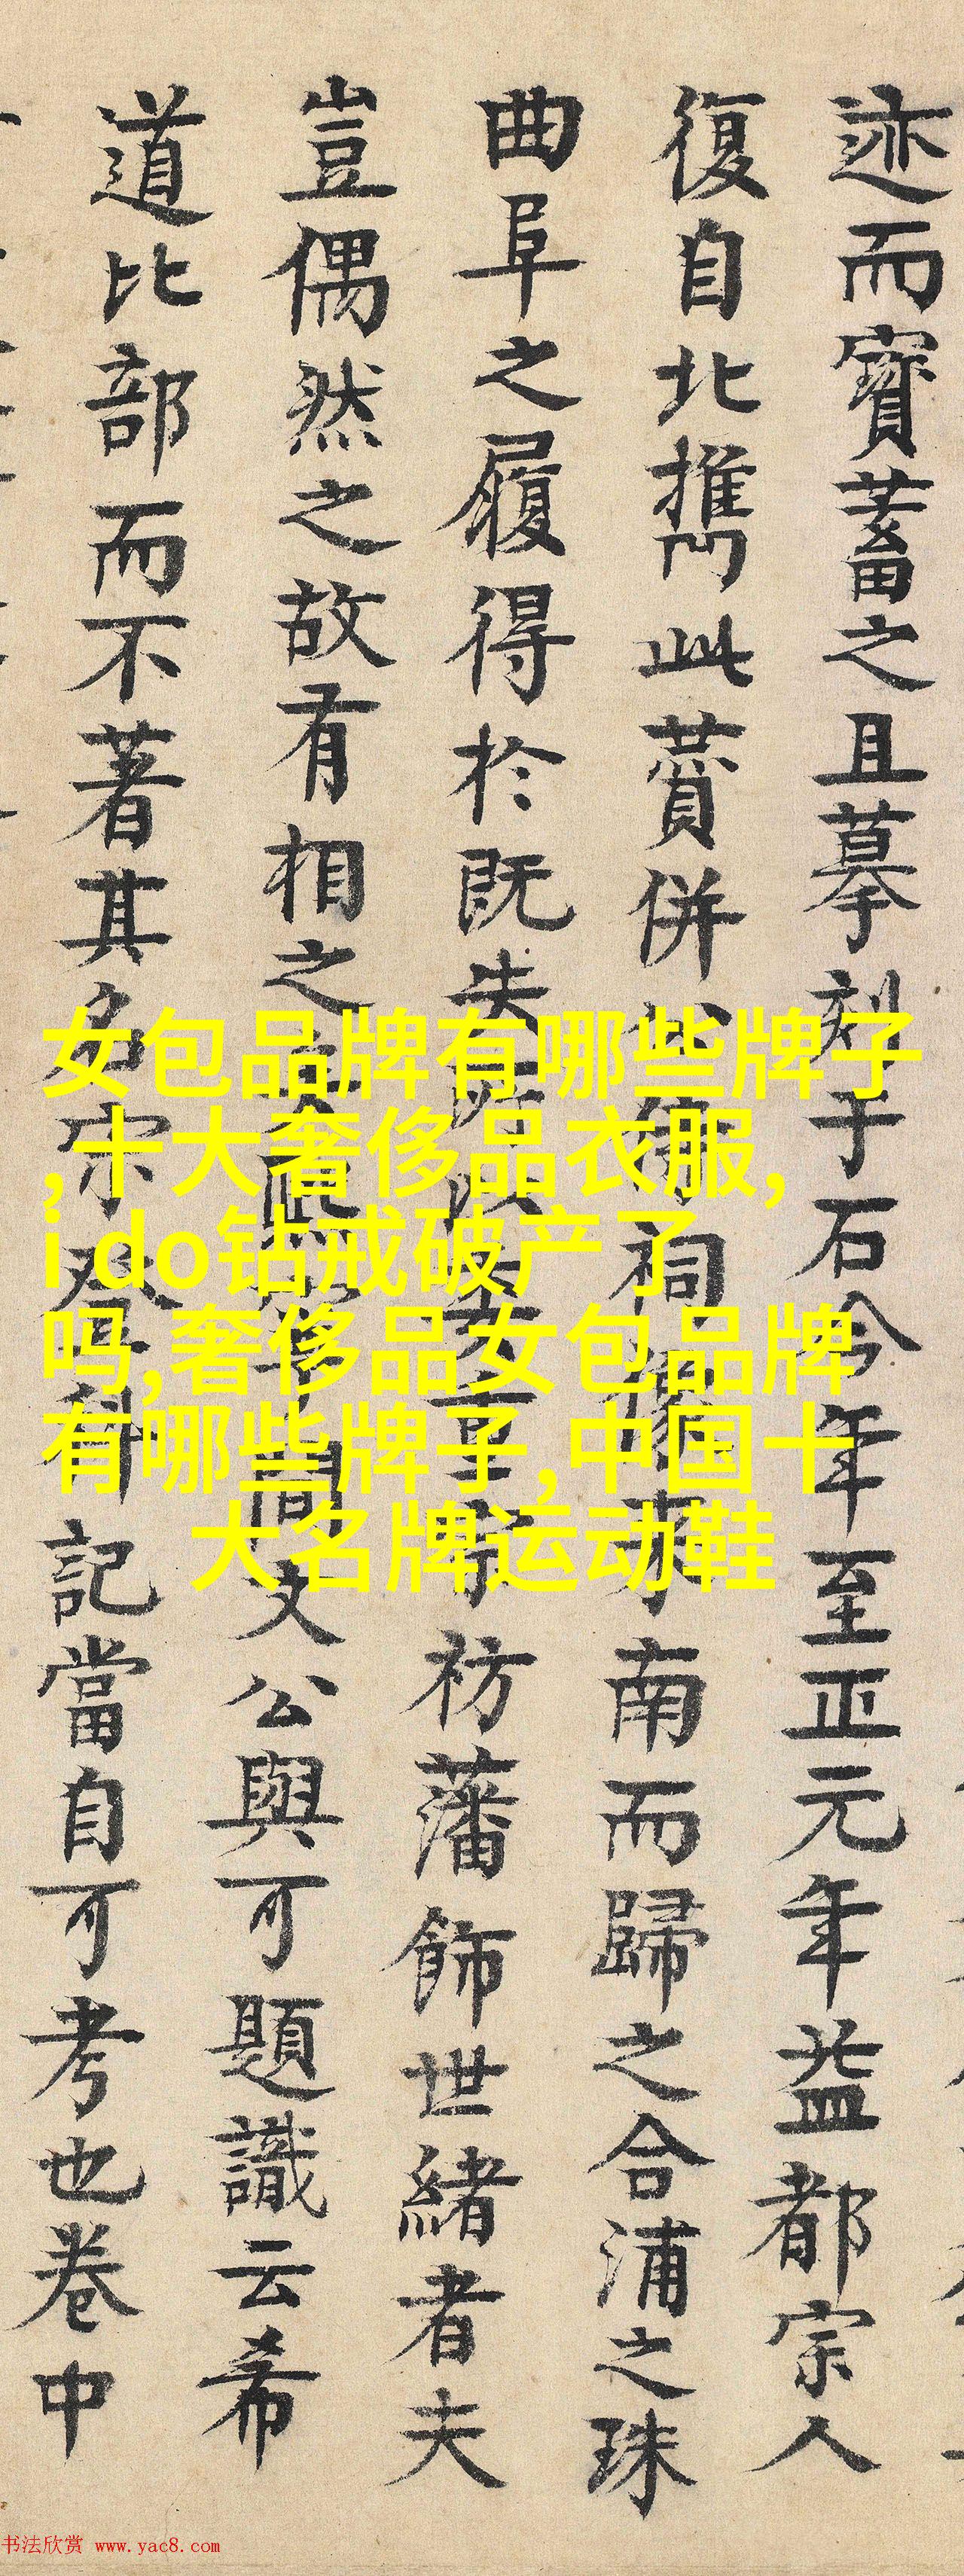 迹而寳蓄之且摹刻于石今年至正元年益都宗人
復自北擕此賷併
祠
南而歸之合浦之珠
曲阜之履得於既失
祊藩飾世緒者夫
豈偶然之故有相之
間文公與可題識云希
道比部而不著其名宋登科記當自可考也卷中
女包品牌有哪些牌子
,十大奢侈品衣服,
i do钻戒破产了
吗,奢侈品女包品牌
有哪些牌子,中国十
大名牌运动鞋
书法欣赏 www.yac8.com